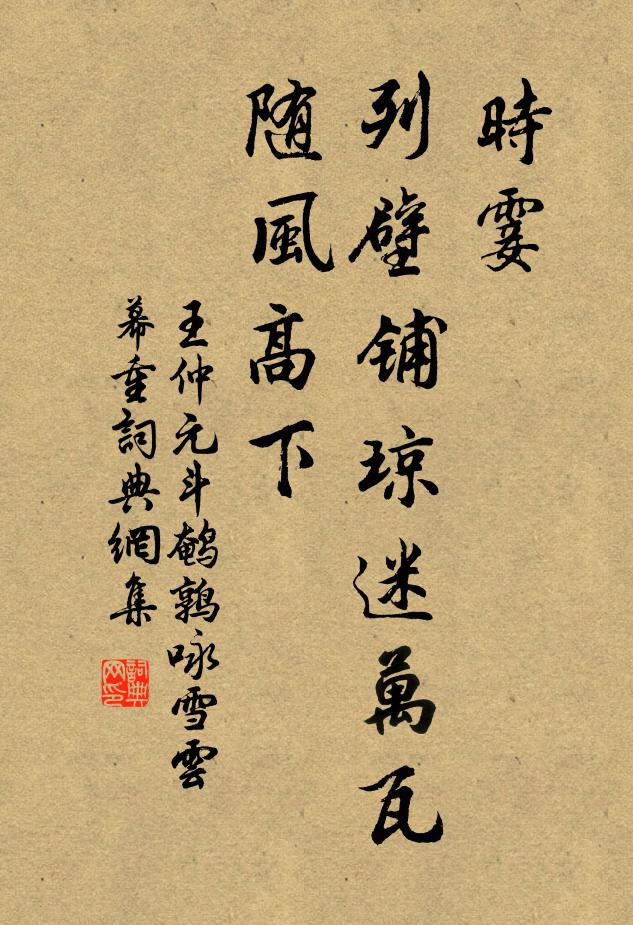 時霎
列壁铺琼迷萬瓦
随風高下
王仲元斗鹌鹑咏雪雲
幕重詞典網集
詞典
网印